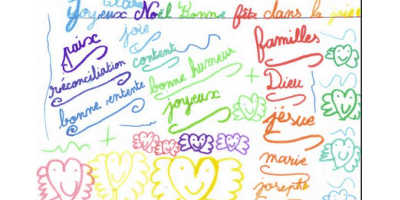 Joyeux Noël Bonne fête dans la joie
paix
réconciliation
bonne entente
joie
content
bonne humeur
joyeux
familles
Dieu
jésue
marie
joseph